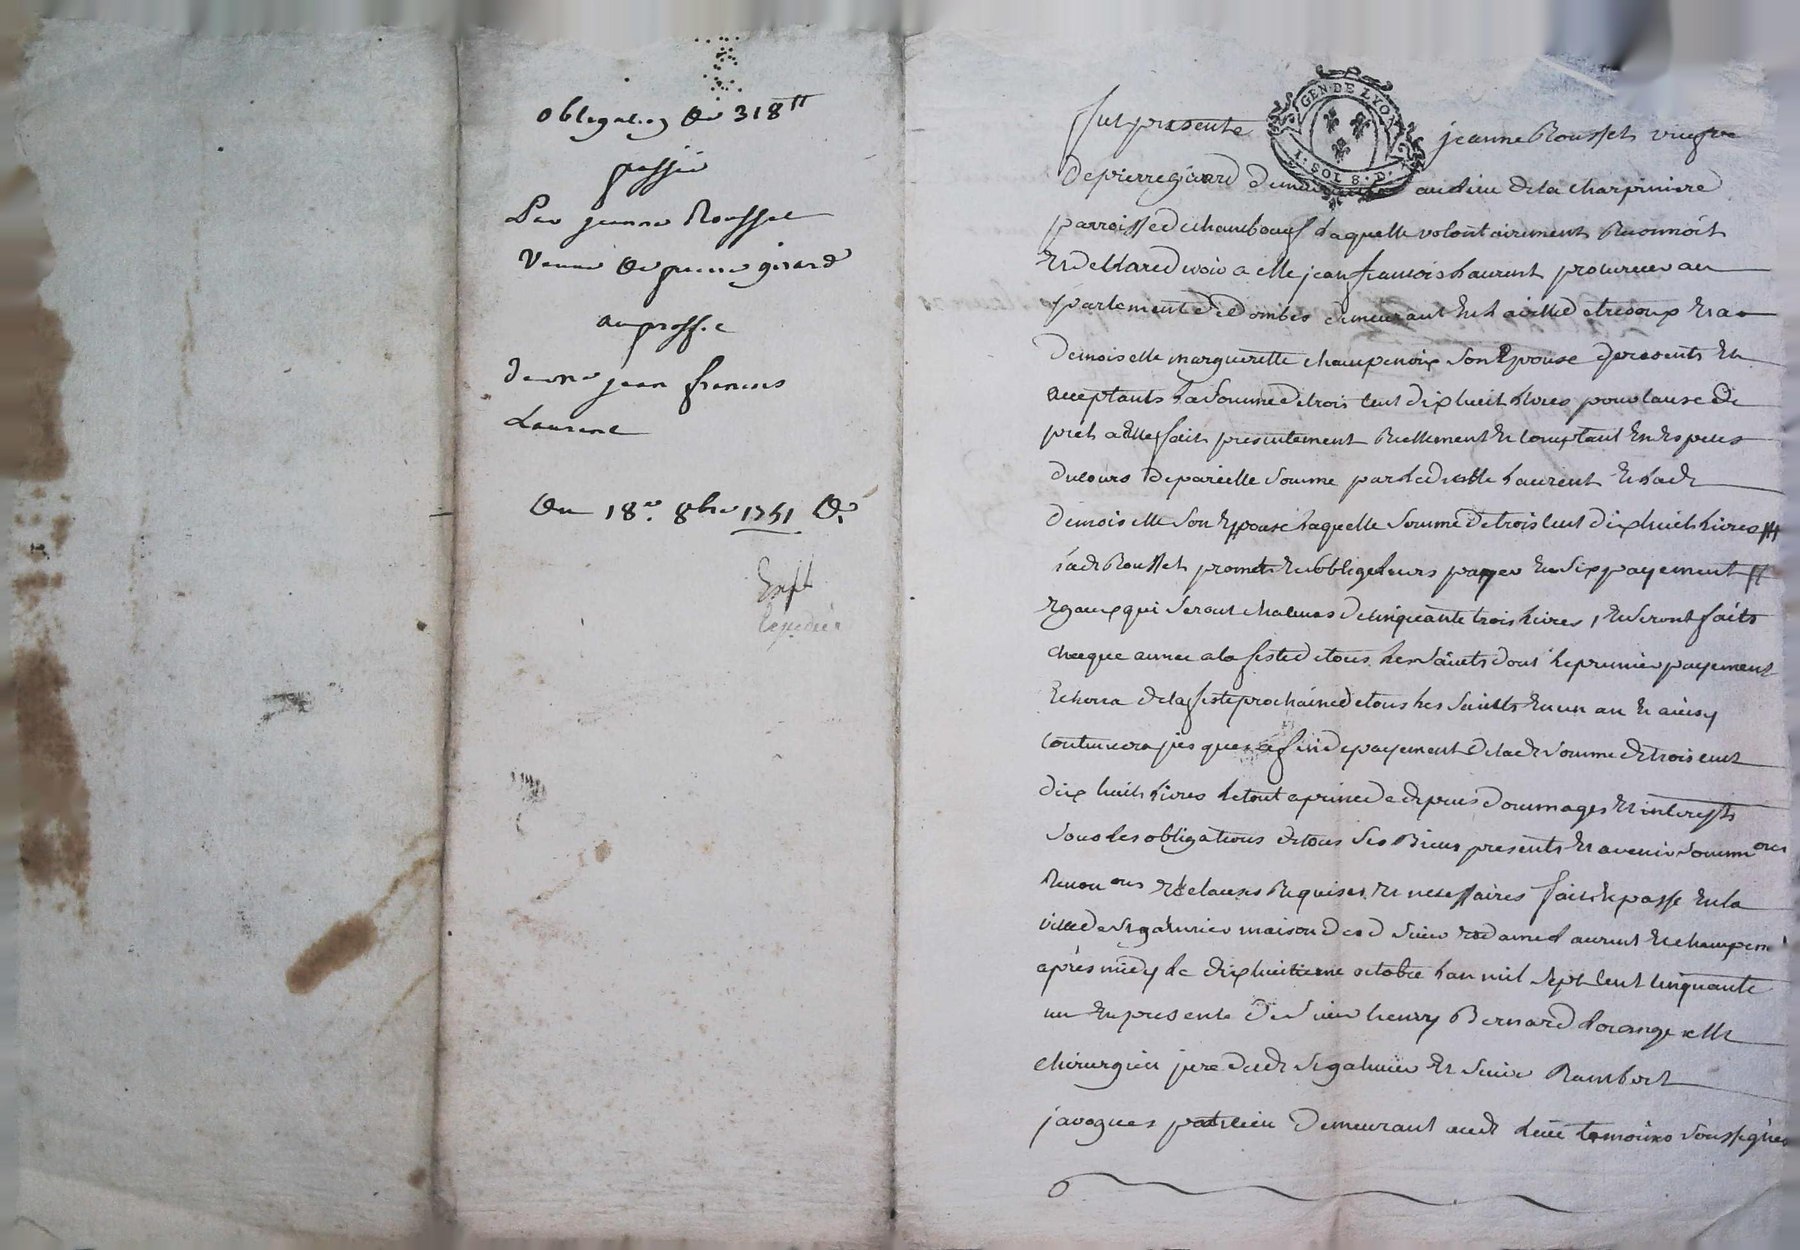 obligation de 318tt
passée
Par jeanne Rousset
Veuve de pierre girard
au proffit
de me jean francois
Laurent
Du 18e 8bre 1751
Expt
GEN·DE LYON
1·SOL 8·D·
fut presente jeanne Rousset veufve
de pierre girard demeurante au lieu de la charpiniere
parroisse de chambœuf laquelle volontairement Reconnoit
Et declare devoir a Me jean francois Laurent procureur au
parlement de dombes demeurant En la ville de trevoux Et a
demoiselle margueritte champenoix son Epouse presents Et
acceptants la somme de trois cent dix huit livres pour cause de
prêt a Elle fait presentement Reellement Et comptant En Especes
du cours de pareille somme par ledit Me Laurent Et lade
demoiselle son Epouse laquelle somme de trois cent dix huit livres
lade Rousset promet Et s'oblige leurs payer En six payements
Egaux qui seront chacuns de cinquante trois livres, Et seront faits
cheque année a la feste de tous les saints dont le premier payement
Echoira de la feste prochaine de tous les saints En un an Et ainsy
continuera jusques a fin de payement de lade somme de trois cent
dix huit livres le tout a peine de depens dommages Et interests
sous les obligations de tous ses Biens presents Et avenir soumons
Renonons Et clauses Requises Et necessaires fait Et passé En la
ville de st galmier maison desd sieur Et dame Laurent Et champenoi
après midy le dixhuitieme octobre l'an mil sept cent cinquante
un En presence de sieur henry Bernard
chirurgien juré dudt st galmier Et sieur Rambert
javogues patissier demeurant audt lieu temoins soussignés